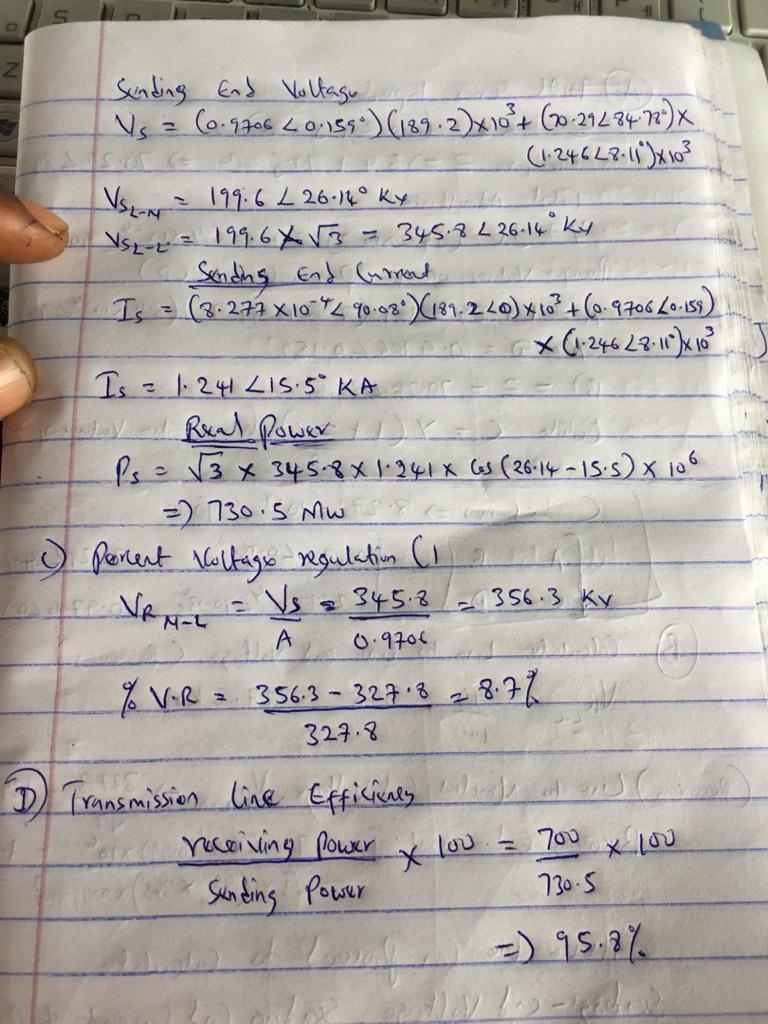 Sending End Voltage
Vs = (0.9706 ∠0.159°)(189.2)×10³ + (70.29∠84.78°)×
(1.246∠8.11°)×10³
Vs L-N = 199.6 ∠ 26.14° Kv
Vs L-L = 199.6 × √3 = 345.8 ∠26.14° Kv
Sending End Current
Is = (8.277 ×10⁻⁴∠ 90.08°)(189.2∠0)×10³ + (0.9706∠0.159)
× (1.246∠8.11°)×10³
Is = 1.241 ∠15.5° KA
Real Power
Ps = √3 × 345.8 × 1.241 × Cos (26.14 - 15.5) × 10⁶
=) 730.5 Mw
C) Percent Voltage regulation (
VR N-L = Vs/A = 345.8/0.9706 = 356.3 Kv
% V.R = (356.3 - 327.8)/327.8 = 8.7%
D) Transmission Line Efficiency
receiving Power/Sending Power × 100 = 700/730.5 × 100
=) 95.8%